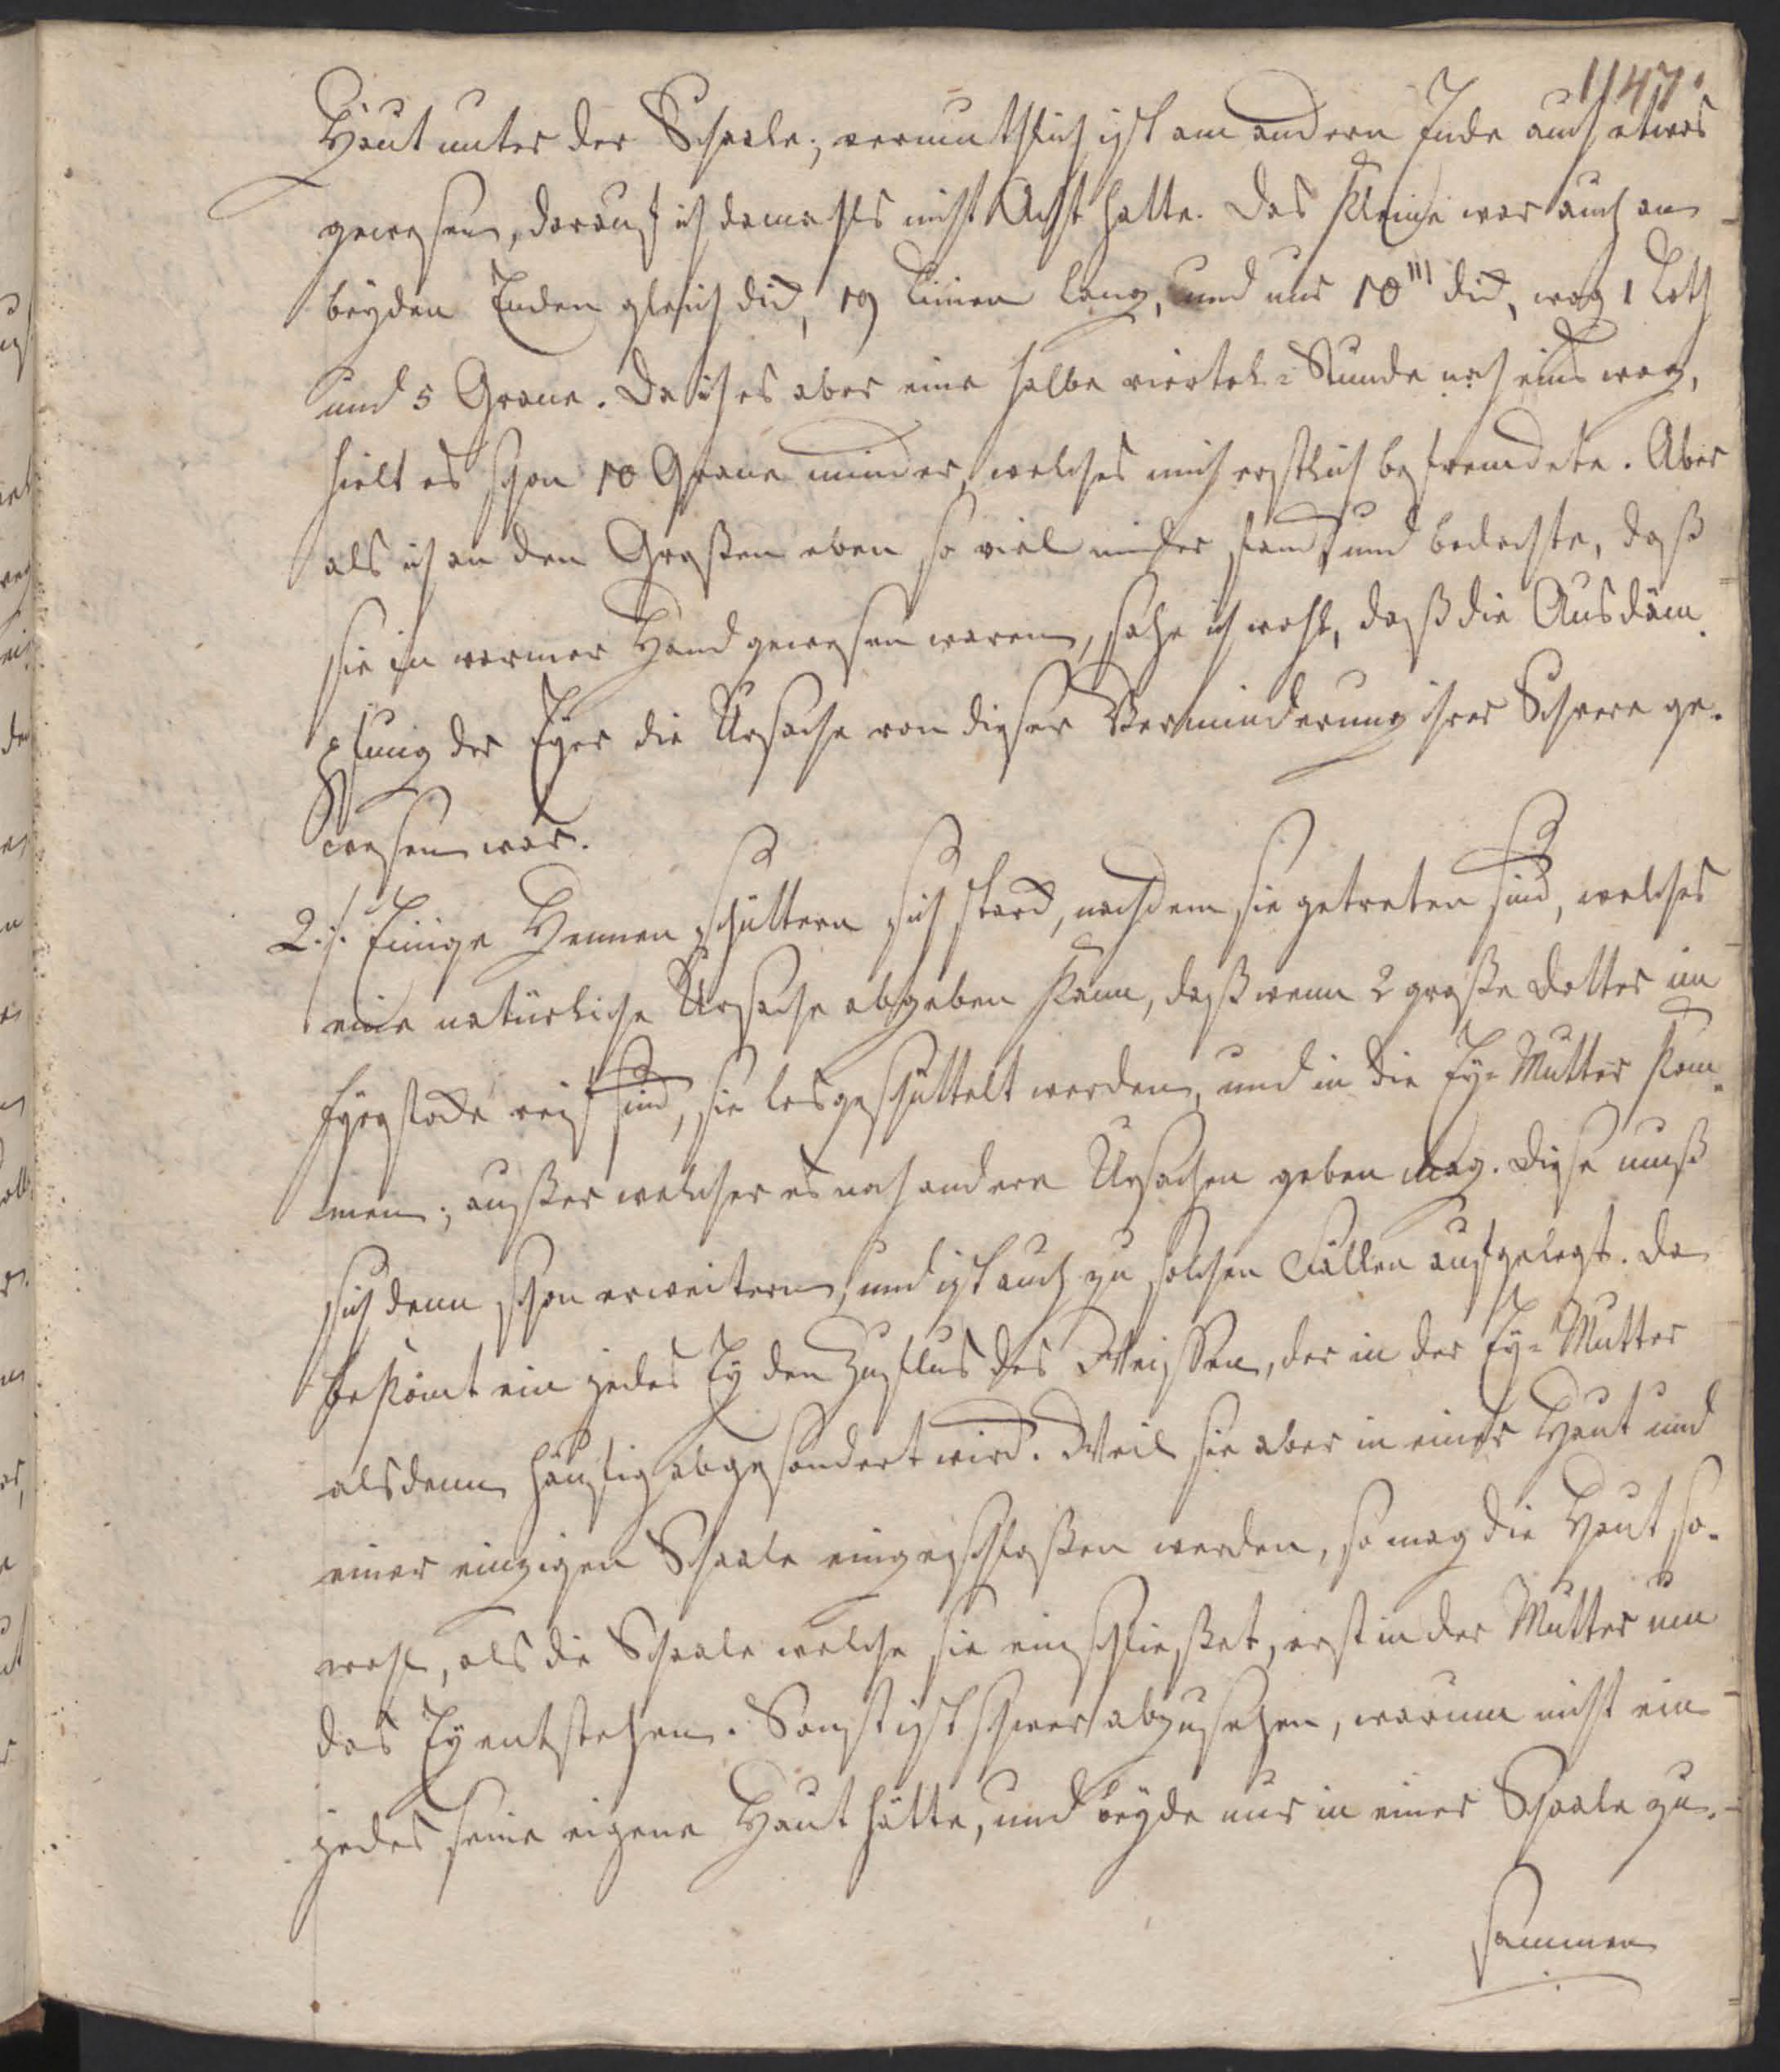 1147.
Haut unter der Schaale; vermuthlich ist am andern Ende auch etwas
gewesen, darauf ich damahls nicht Acht hatte. Das Kleine war auch an
beyden Enden gleich dick, 19 Linien lang, und nur 10''' dick, wog 1 Loth
und 5 Grane. Da ich es aber eine halbe viertel=Stunde nach eins wog,
hielt es schon 10 Grane minder, welches mich erstlich befremdete. Aber
als ich an den Großen eben so viel minder fand, und bedachte, daß
sie in warmer Hand gewesen waren, sahe ich wohl, daß die Ausdäm-
pfung der Eyer die Ursache von dieser Verminderung ihrer Schwere ge-
wesen war.
2./. Einige Hennen schüttern sich starck, nachdem sie getreten sind, welches
eine natürliche Ursache abgeben kann, daß wenn 2 große Dotter im
Eyerstocke reif sind, sie losgeschüttelt werden, und in die Ey=Mutter kom-
men; außer welcher es noch andere Ursachen geben mag. Diese muß
sich denn schon erweitern, und ist auch zu solchen Fällen aufgelegt. Da
bekömt ein jedes Ey den Zufluß des Weissen, der in der Ey=Mutter
alsdenn häufig abgesondert wird. Weil sie aber in einer Haut und
einer einzigen Schaale eingeschloßen werden, so mag die Haut so-
wohl, als die Schaale welche sie einschließet, erst in der Mutter um
das Ey entstehen. Sonst ist schwer abzusehen, warum nicht ein
jedes seine eigene Haut hätte, und beyde nur in einer Schaale zu-
sammen